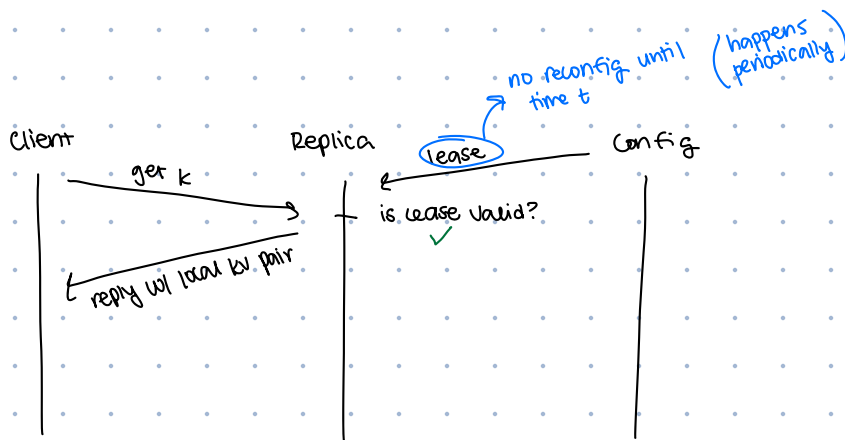 no reconfig until
time t
(happens
periodically)
Client
Replica
lease
Config
get k
is lease valid?
✓
reply w/ local kv pair